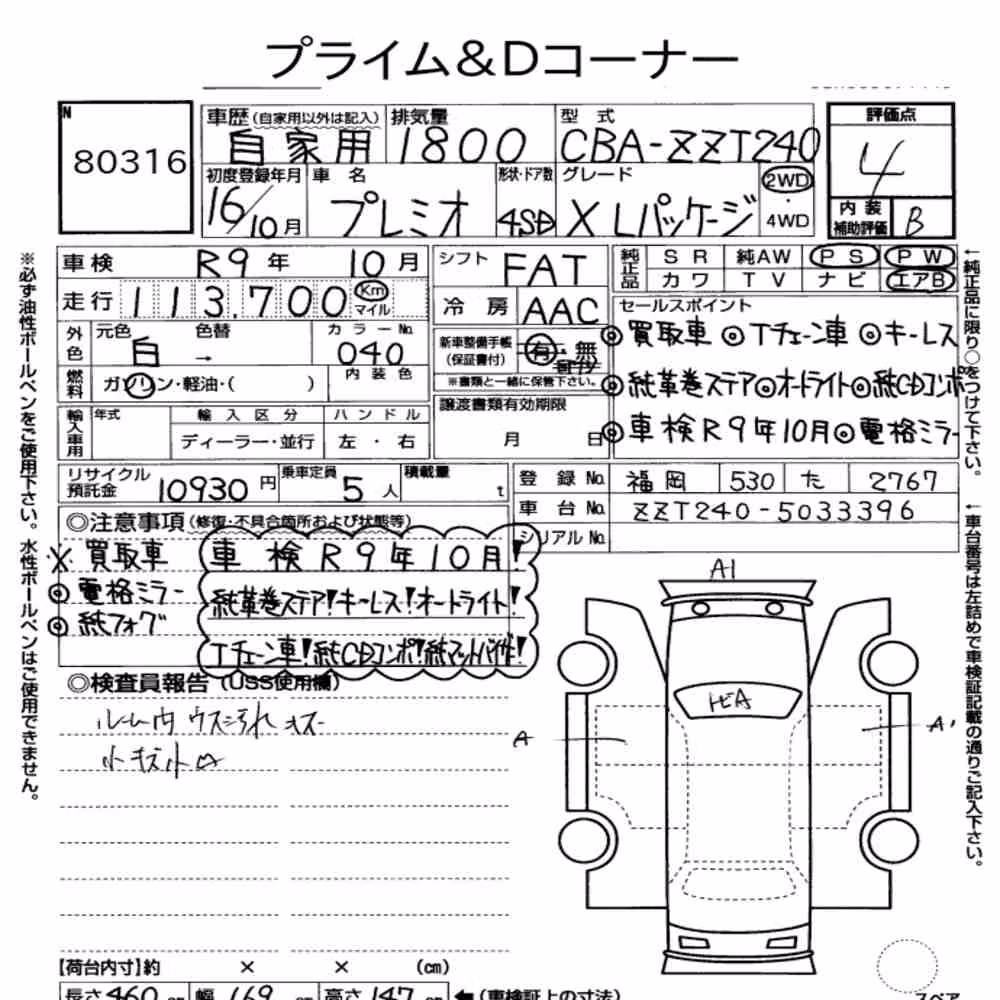 プライム&Dコーナー
N
80316
車歴 (自家用以外は記入) 排気量 型式 評価点
自家用 1800 CBA-ZZT240 4
初度登録年月 車名 形状・ドア数 グレード 2WD
16/10月 プレミオ 4SD X Lパッケージ ・ 4WD
内装補助評価 B
車検 R9年 10月
シフト FAT
純正品 SR 純AW PS PW
カワ TV ナビ エアB
走行 113,700 Km マイル
冷房 AAC
セールスポイント
◎買取車 ◎Tチェーン車 ◎キーレス
外色 元色 色替 カラーNo.
白 → 040
新車整備手帳(保証書付) 有・無
※書類と一緒に保管下さい。
◎純革巻ステア◎オートライト◎純CDコンポ
燃料 ガソリン・軽油・( ) 内装色
譲渡書類有効期限
月 日
◎車検R9年10月◎電格ミラー
輸入車用 年式 輸入区分 ハンドル
ディーラー・並行 左・右
リサイクル預託金 10930円 乗車定員 5人 積載量 t
登録No. 福岡 530 た 2767
車台No. ZZT240-5033396
シリアルNo.
◎注意事項 (修復・不具合箇所および状態等)
※買取車 車検R9年10月!
◎電格ミラー 純革巻ステア!キーレス!オートライト!
◎純フォグ Tチェーン車!純CDコンポ!純マット
◎検査員報告 (USS使用欄)
ルーム内 ウス汚れ キズ
小キズ小凹
A1
トビA
A
A1
【荷台内寸】約 × × (cm)
長さ460cm 幅169cm 高さ147cm ←(車検証上の寸法)
スペア
※必ず油性ボールペンをご使用下さい。水性ボールペンはご使用できません。
←純正品に限り○をつけて下さい。
←車台番号は左詰めで車検証記載の通りご記入下さい。